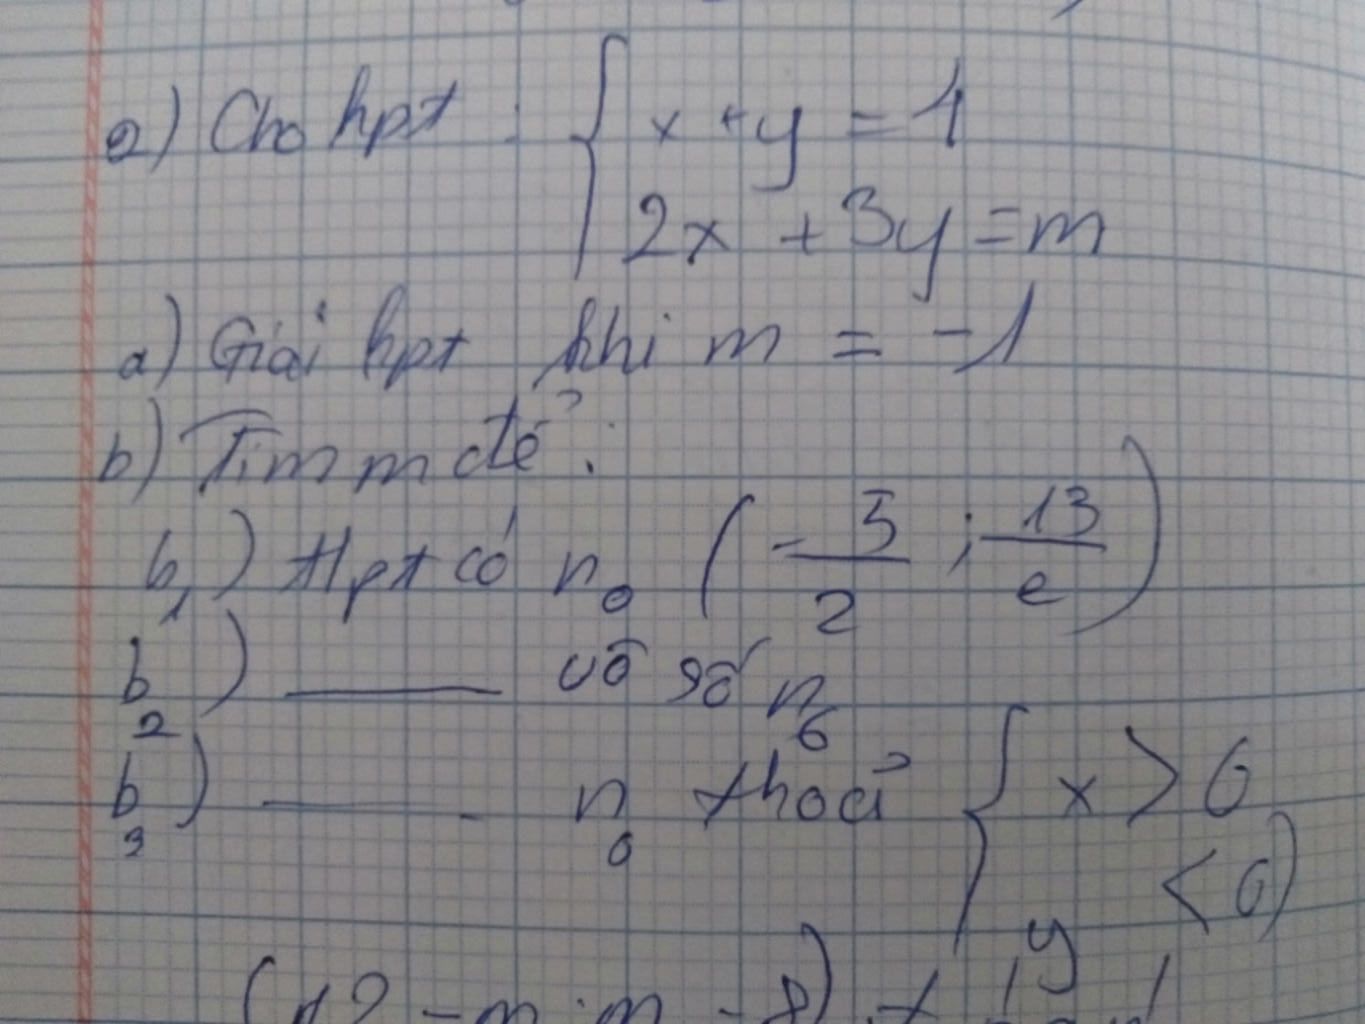 2) Cho hpt : { x + y = 1
2x + 3y = m
a) Giải hpt khi m = -1
b) Tìm m để :
b₁) Hpt có n₀ ( -5/2 ; 13/2 )
b₂) ——— vô số n₀
b₃) ——— n₀ thoả { x > 0
y < 0 )